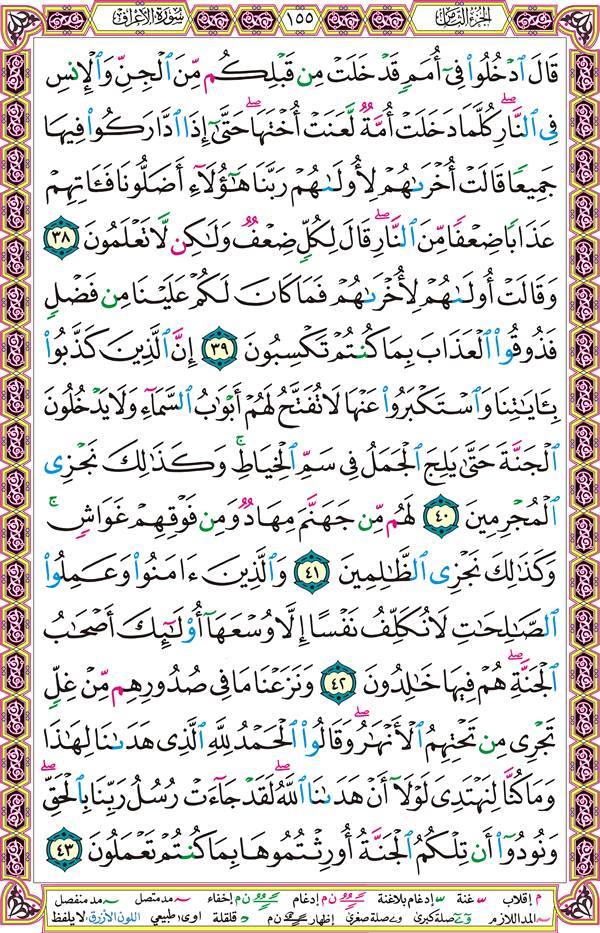 الجزء الثامن ١٥٥ سُورَةُ الأَعْرَاف
قَالَ ٱدۡخُلُواْ فِيٓ أُمَمٖ قَدۡ خَلَتۡ مِن قَبۡلِكُم مِّنَ ٱلۡجِنِّ وَٱلۡإِنسِ
فِي ٱلنَّارِۖ كُلَّمَا دَخَلَتۡ أُمَّةٞ لَّعَنَتۡ أُخۡتَهَاۖ حَتَّىٰٓ إِذَا ٱدَّارَكُواْ فِيهَا
جَمِيعٗا قَالَتۡ أُخۡرَىٰهُمۡ لِأُولَىٰهُمۡ رَبَّنَا هَٰٓؤُلَآءِ أَضَلُّونَا فَـَٔاتِهِمۡ
عَذَابٗا ضِعۡفٗا مِّنَ ٱلنَّارِۖ قَالَ لِكُلّٖ ضِعۡفٞ وَلَٰكِن لَّا تَعۡلَمُونَ ٣٨
وَقَالَتۡ أُولَىٰهُمۡ لِأُخۡرَىٰهُمۡ فَمَا كَانَ لَكُمۡ عَلَيۡنَا مِن فَضۡلٖ
فَذُوقُواْ ٱلۡعَذَابَ بِمَا كُنتُمۡ تَكۡسِبُونَ ٣٩ إِنَّ ٱلَّذِينَ كَذَّبُواْ
بِـَٔايَٰتِنَا وَٱسۡتَكۡبَرُواْ عَنۡهَا لَا تُفَتَّحُ لَهُمۡ أَبۡوَٰبُ ٱلسَّمَآءِ وَلَا يَدۡخُلُونَ
ٱلۡجَنَّةَ حَتَّىٰ يَلِجَ ٱلۡجَمَلُ فِي سَمِّ ٱلۡخِيَاطِۚ وَكَذَٰلِكَ نَجۡزِي
ٱلۡمُجۡرِمِينَ ٤٠ لَهُم مِّن جَهَنَّمَ مِهَادٞ وَمِن فَوۡقِهِمۡ غَوَاشٖۚ
وَكَذَٰلِكَ نَجۡزِي ٱلظَّٰلِمِينَ ٤١ وَٱلَّذِينَ ءَامَنُواْ وَعَمِلُواْ
ٱلصَّٰلِحَٰتِ لَا نُكَلِّفُ نَفۡسًا إِلَّا وُسۡعَهَآ أُوْلَٰٓئِكَ أَصۡحَٰبُ
ٱلۡجَنَّةِۖ هُمۡ فِيهَا خَٰلِدُونَ ٤٢ وَنَزَعۡنَا مَا فِي صُدُورِهِم مِّنۡ غِلّٖ
تَجۡرِي مِن تَحۡتِهِمُ ٱلۡأَنۡهَٰرُۖ وَقَالُواْ ٱلۡحَمۡدُ لِلَّهِ ٱلَّذِي هَدَىٰنَا لِهَٰذَا
وَمَا كُنَّا لِنَهۡتَدِيَ لَوۡلَآ أَنۡ هَدَىٰنَا ٱللَّهُۖ لَقَدۡ جَآءَتۡ رُسُلُ رَبِّنَا بِٱلۡحَقِّۖ
وَنُودُوٓاْ أَن تِلۡكُمُ ٱلۡجَنَّةُ أُورِثۡتُمُوهَا بِمَا كُنتُمۡ تَعۡمَلُونَ ٤٣
م إقلاب غنة إدغام بلاغنة ن م إدغام ن م إخفاء مد متصل مد منفصل
المد اللازم صلة كبرى صلة صغرى إظهار ن م قلقلة اوى طبيعي اللون الأزرق: لا يلفظ